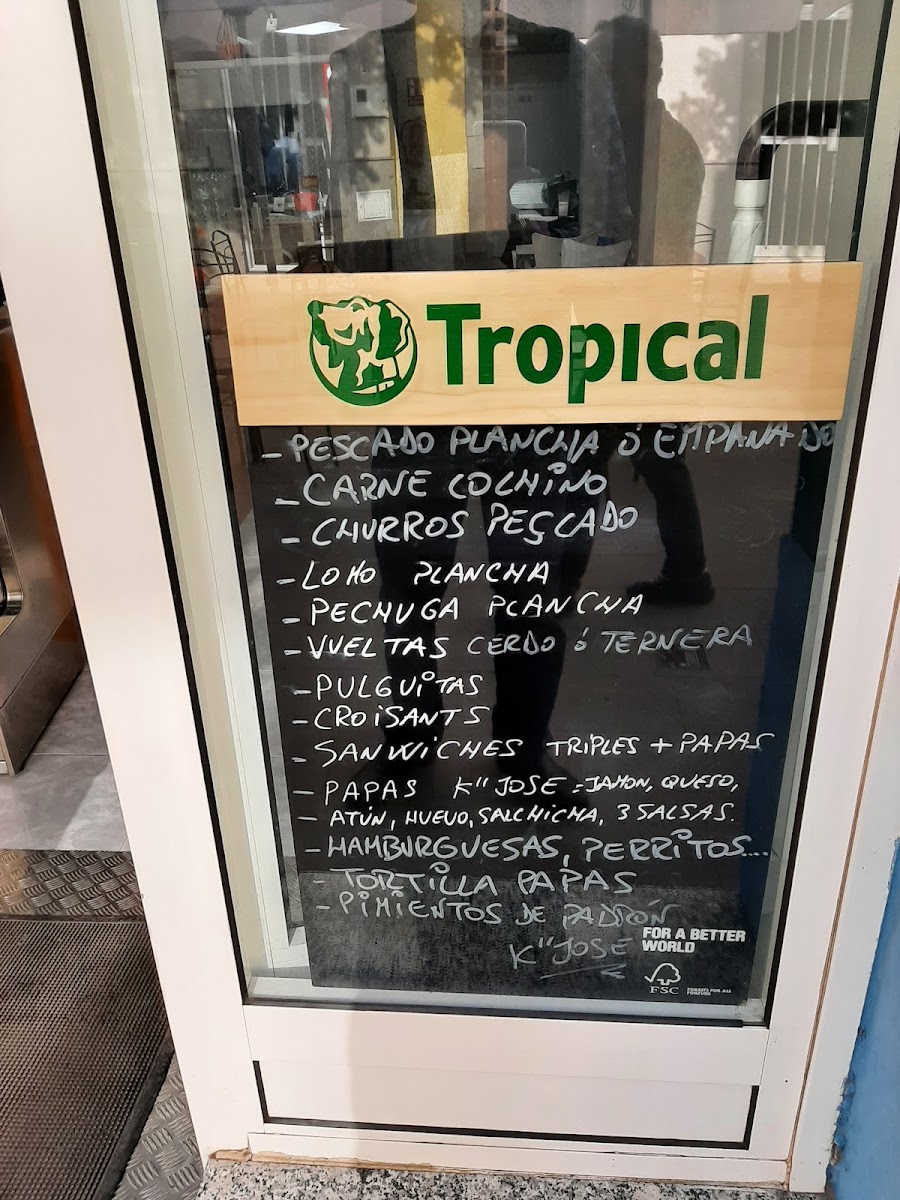 Tropical
- PESCADO PLANCHA ó EMPANADO
- CARNE COCHINO
- CHURROS PESCADO
- LOMO PLANCHA
- PECHUGA PLANCHA
- VUELTAS CERDO ó TERNERA
- PULGUITAS
- CROISANTS
- SANWICHES TRIPLES + PAPAS
- PAPAS K" JOSE = JAMON, QUESO,
- ATÚN, HUEVO, SALCHICHA, 3 SALSAS.
- HAMBURGUESAS, PERRITOS....
- TORTILLA PAPAS
- PIMIENTOS DE PADRÓN
K" JOSE
FOR A BETTER
WORLD
FSC
FORESTS FOR ALL
FOREVER